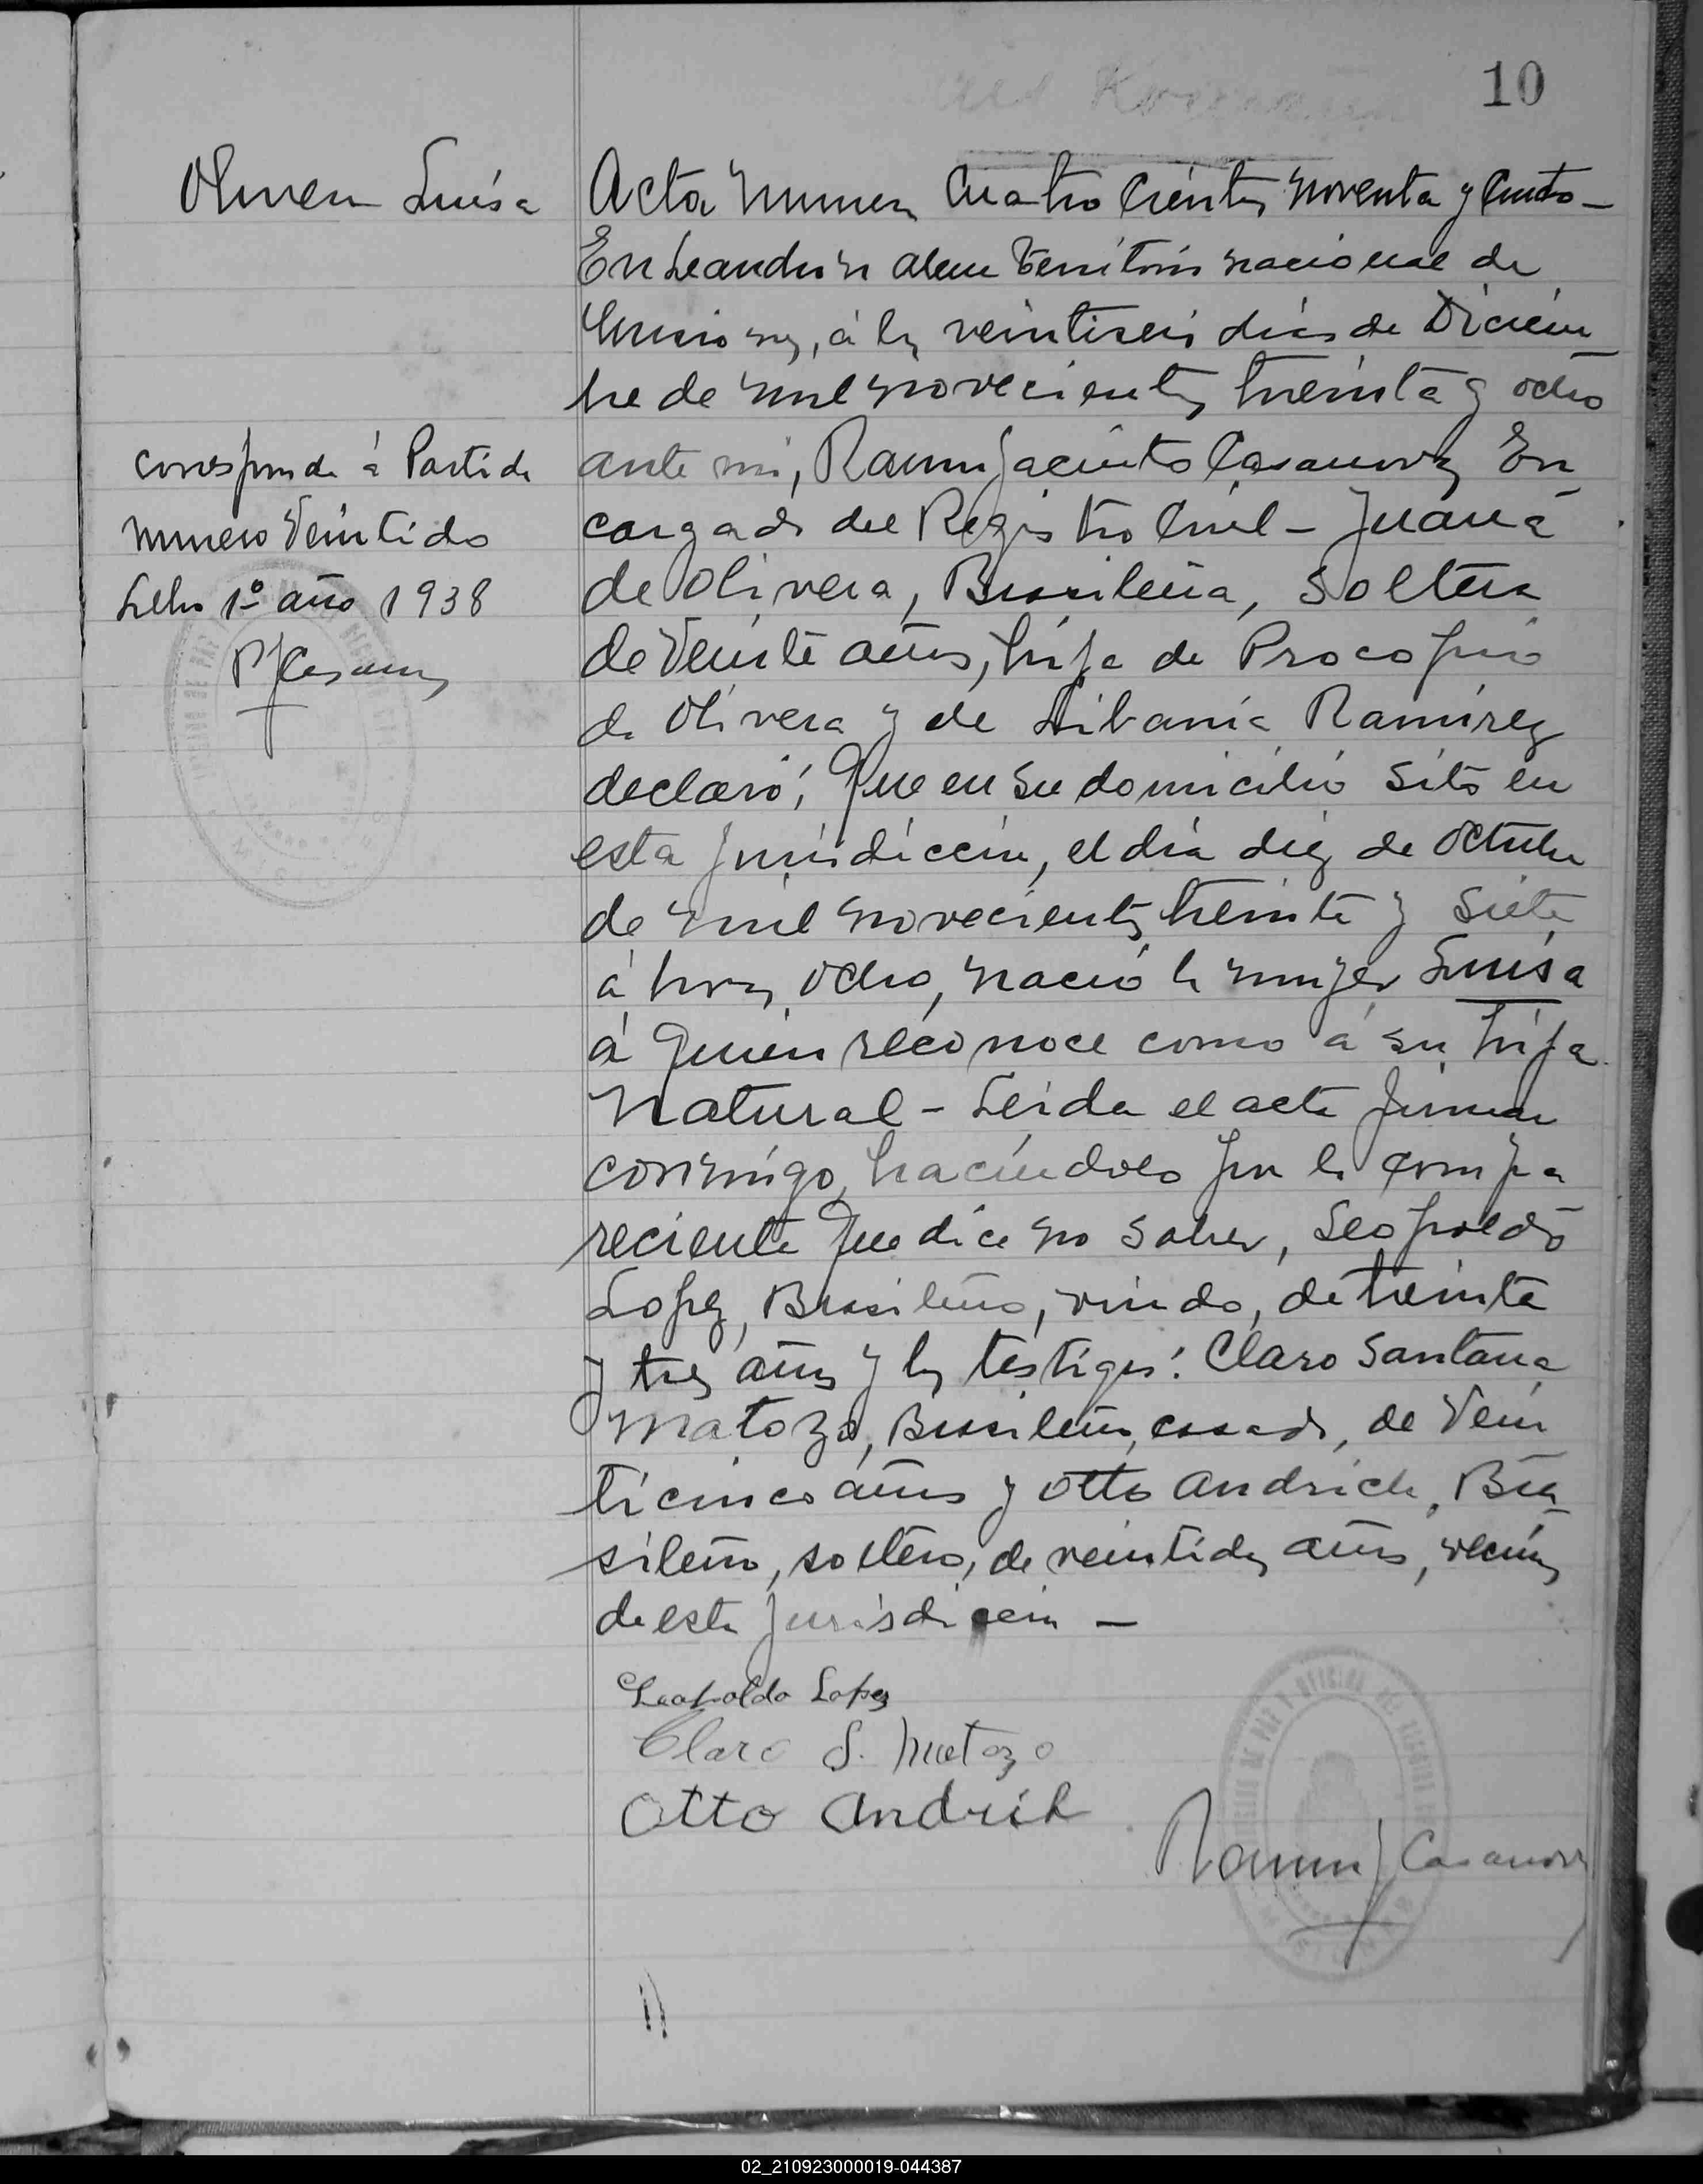 10
Olivera Luisa
Acta Numero Cuatro Cientos Noventa y Cuatro -
En Leandro N Alem Territorio nacional de
Misiones, á los veintiseis dias de Diciem
bre de mil novecientos treinta y ocho
ante mi, Ramon Jacinto Casanova, En
cargado del Registro Civil - Juana
de Olivera, Brasileña, Soltera
de Veinte años, hija de Procopio
de Olivera y de Libania Ramirez
declaró: Que en su domicilio sito en
esta jurisdiccion, el dia diez de Octubre
de mil novecientos treinta y siete
á horas ocho, nació la mujer Luisa
á quien reconoce como á su hija
Natural - Leida el acta firman
conmigo, haciendolo por la compa
reciente que dice no saber, Leopoldo
Lopez, Brasileño, viudo, de treinta
y tres años y los testigos: Claro Santana
Matozo, Brasileño, casado, de Vein
ticinco años y Otto Andrich, Bra
sileño, soltero, de veintidos años, vecinos
de esta jurisdiccion -
corresponde á Partida
numero Veintidos
Libro 1º año 1938
R J Casanova
Leopoldo Lopez
Claro S. Matozo
Otto Andrich
Ramon J Casanova
02_210923000019-044387